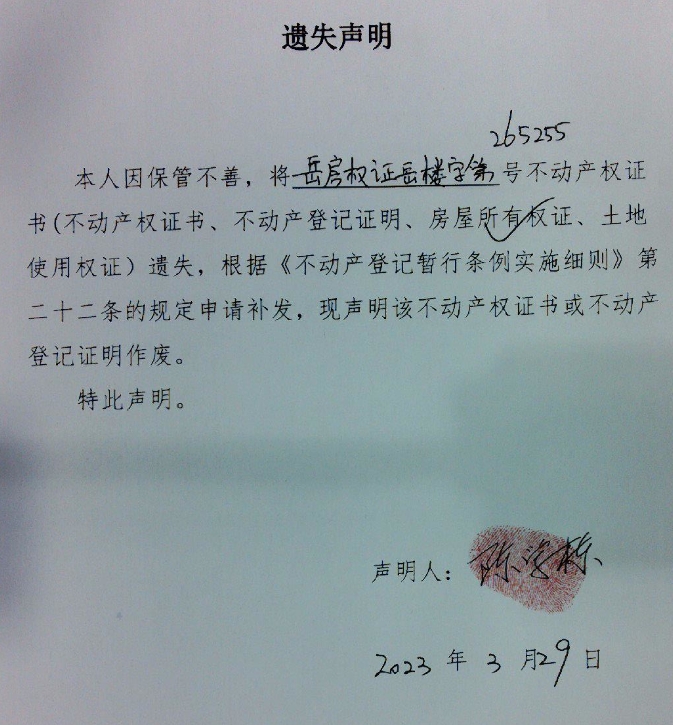 遗失声明
265255
本人因保管不善，将岳房权证岳楼字第号不动产权证
书(不动产权证书、不动产登记证明、房屋所有权证、土地
使用权证）遗失，根据《不动产登记暂行条例实施细则》第
二十二条的规定申请补发，现声明该不动产权证书或不动产
登记证明作废。
特此声明。
声明人：陈学栋
2023 年 3 月29日